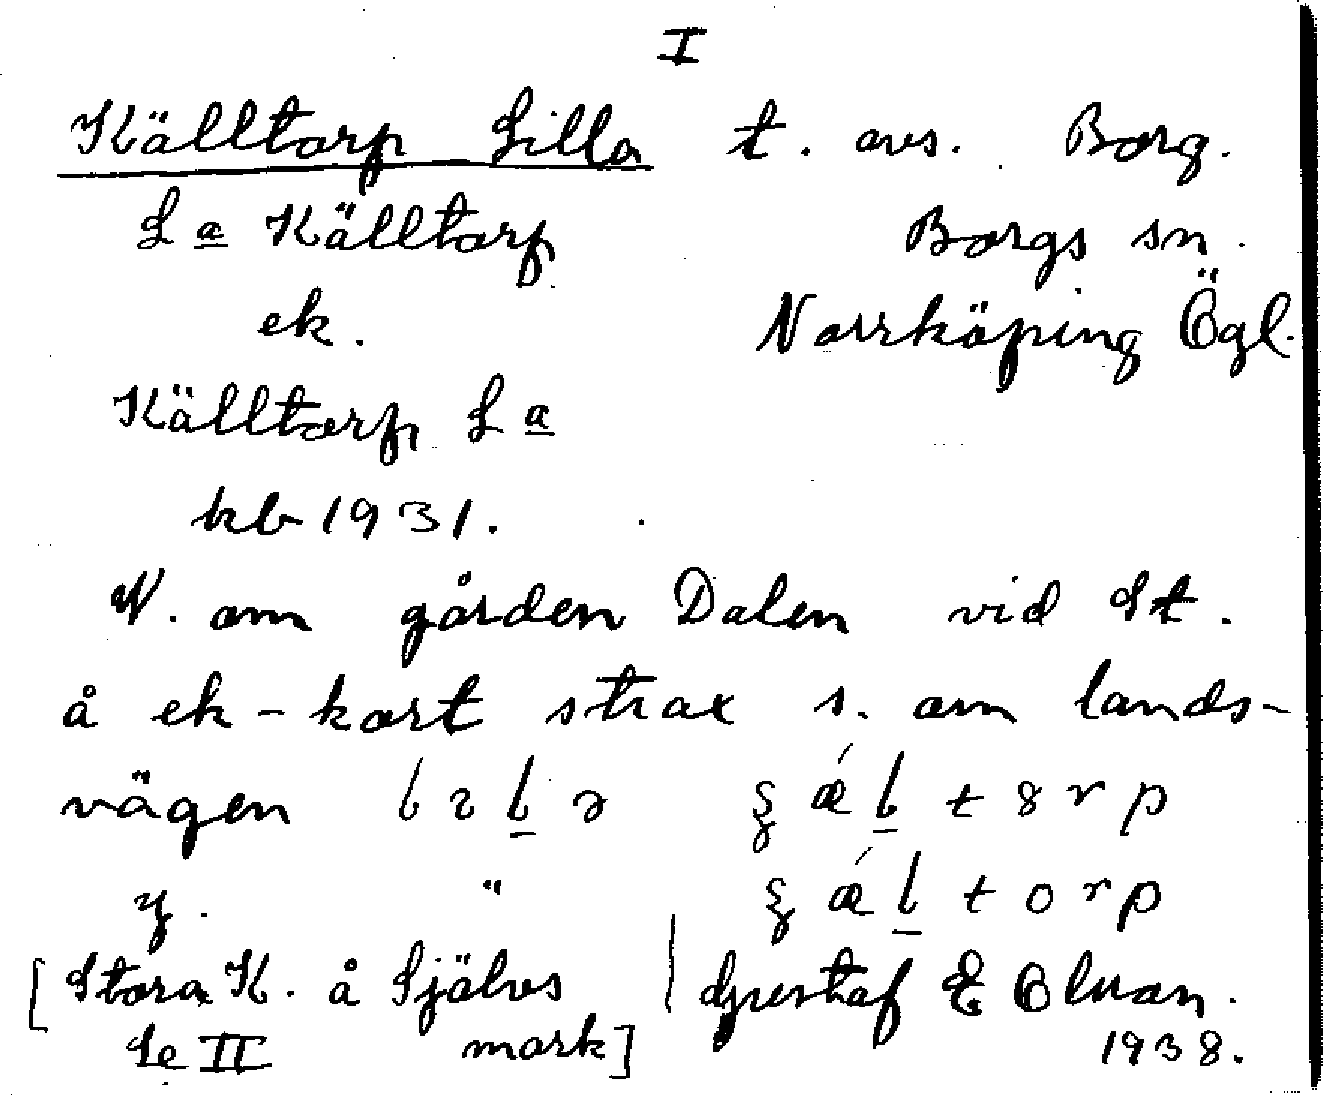 I
Källtorp Lilla t. avs. Borg.
L a Källtorp Borgs sn.
ek. Norrköping Ögl.
Källtorp L a
kb 1931.
N. om gården Dalen vid St.
å ek-kart strax s. om lands-
vägen
y. "
[Stora K. å Självs Gustaf E
Se II mark] 1938.